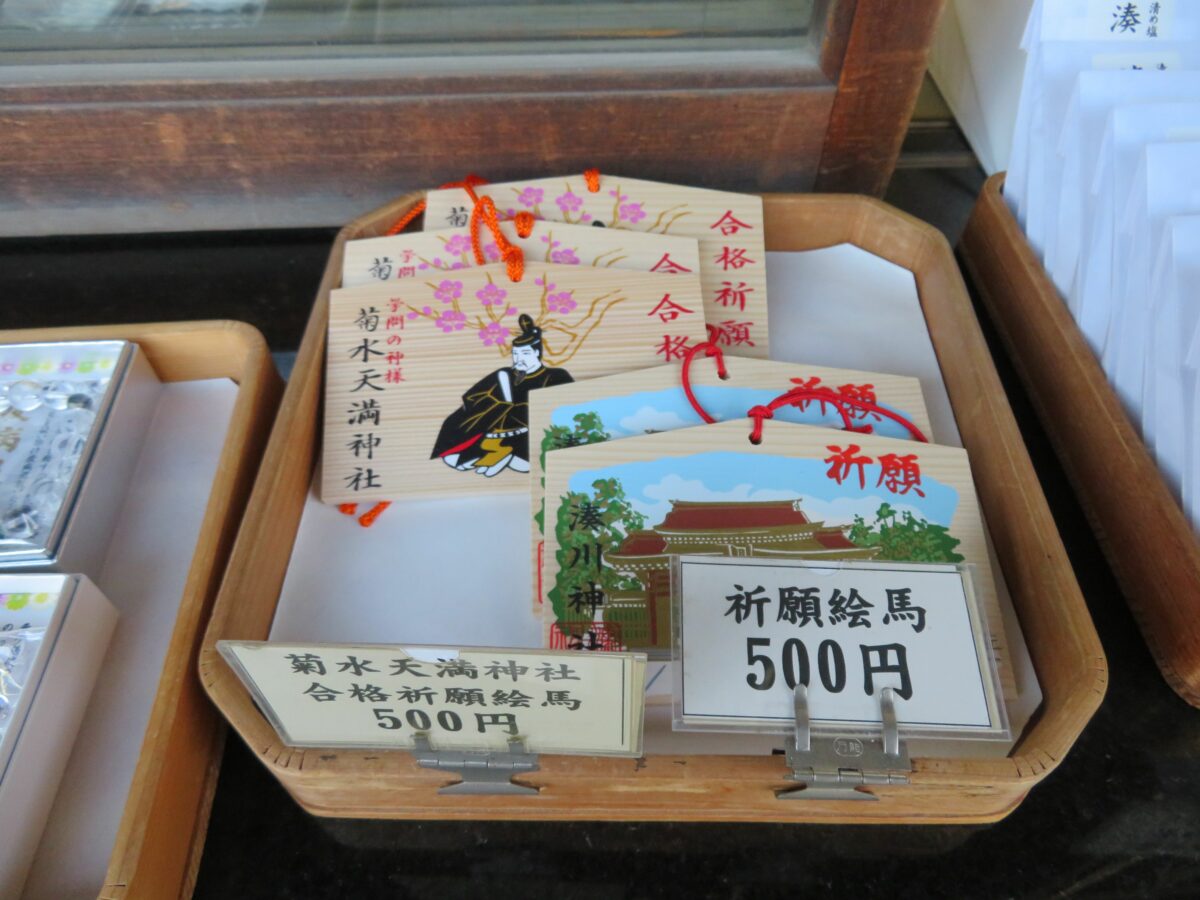 清め塩
湊
菊
合格祈願
学問
菊
合
学問の神様
菊水天満神社
合格
祈願
祈願
湊川神社
菊水天満神社
合格祈願絵馬
500円
祈願絵馬
500円